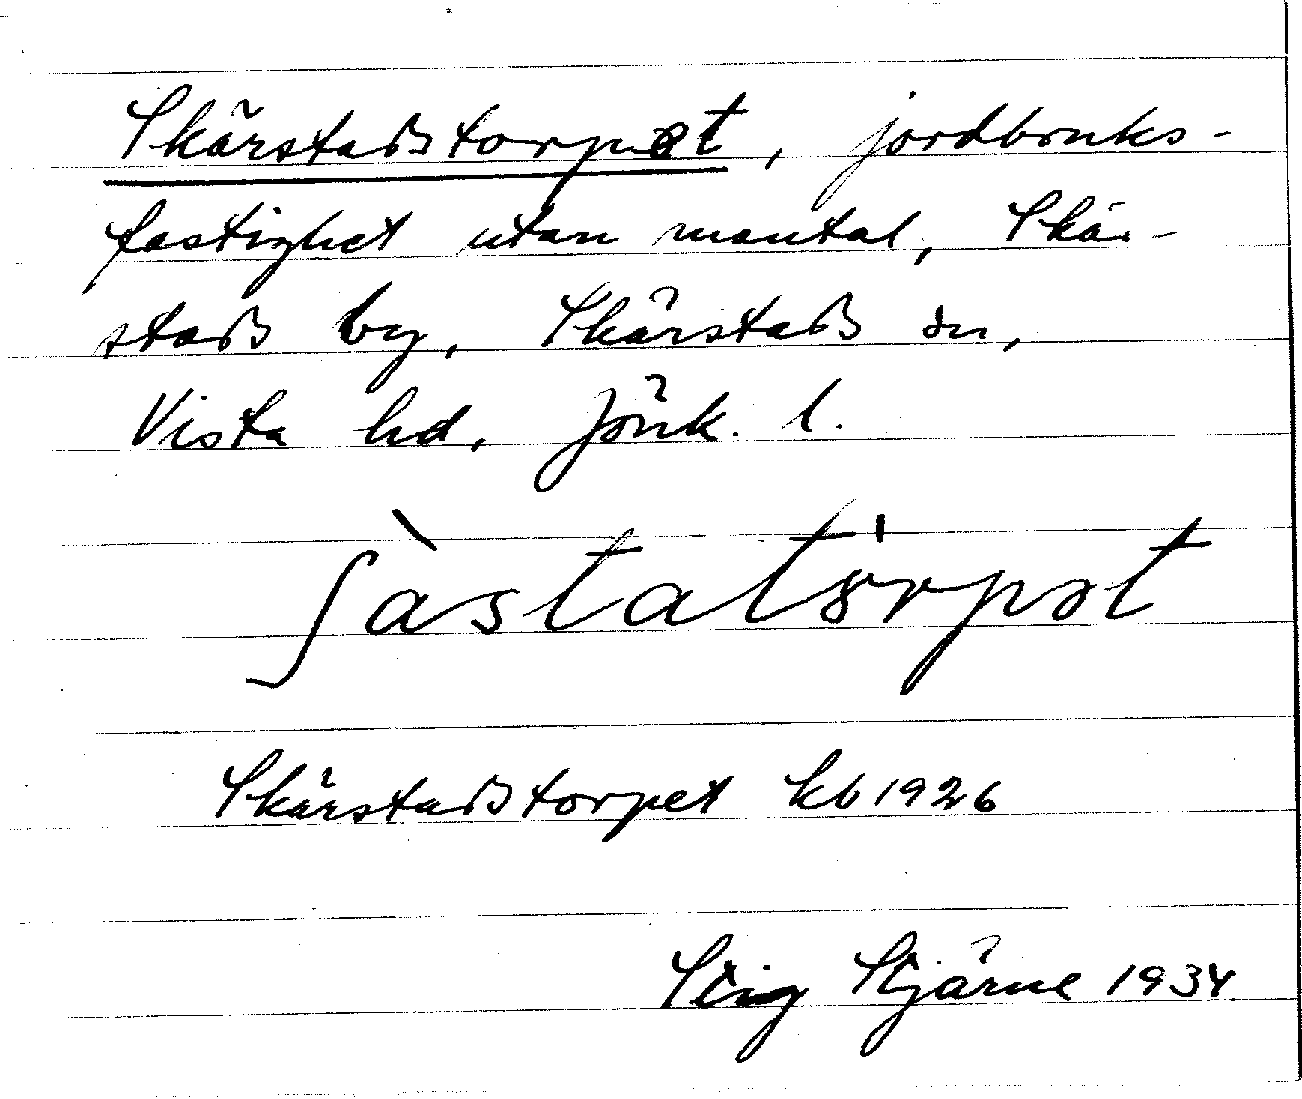 Skärstadstorpet, jordbruks-
fastighet utan mantal, Skär-
stads by, Skärstads sn,
Vista hd, Jönk. l.
ʃàstatörpət
Skärstadstorpet kb 1926
Stig Stjärne 1934